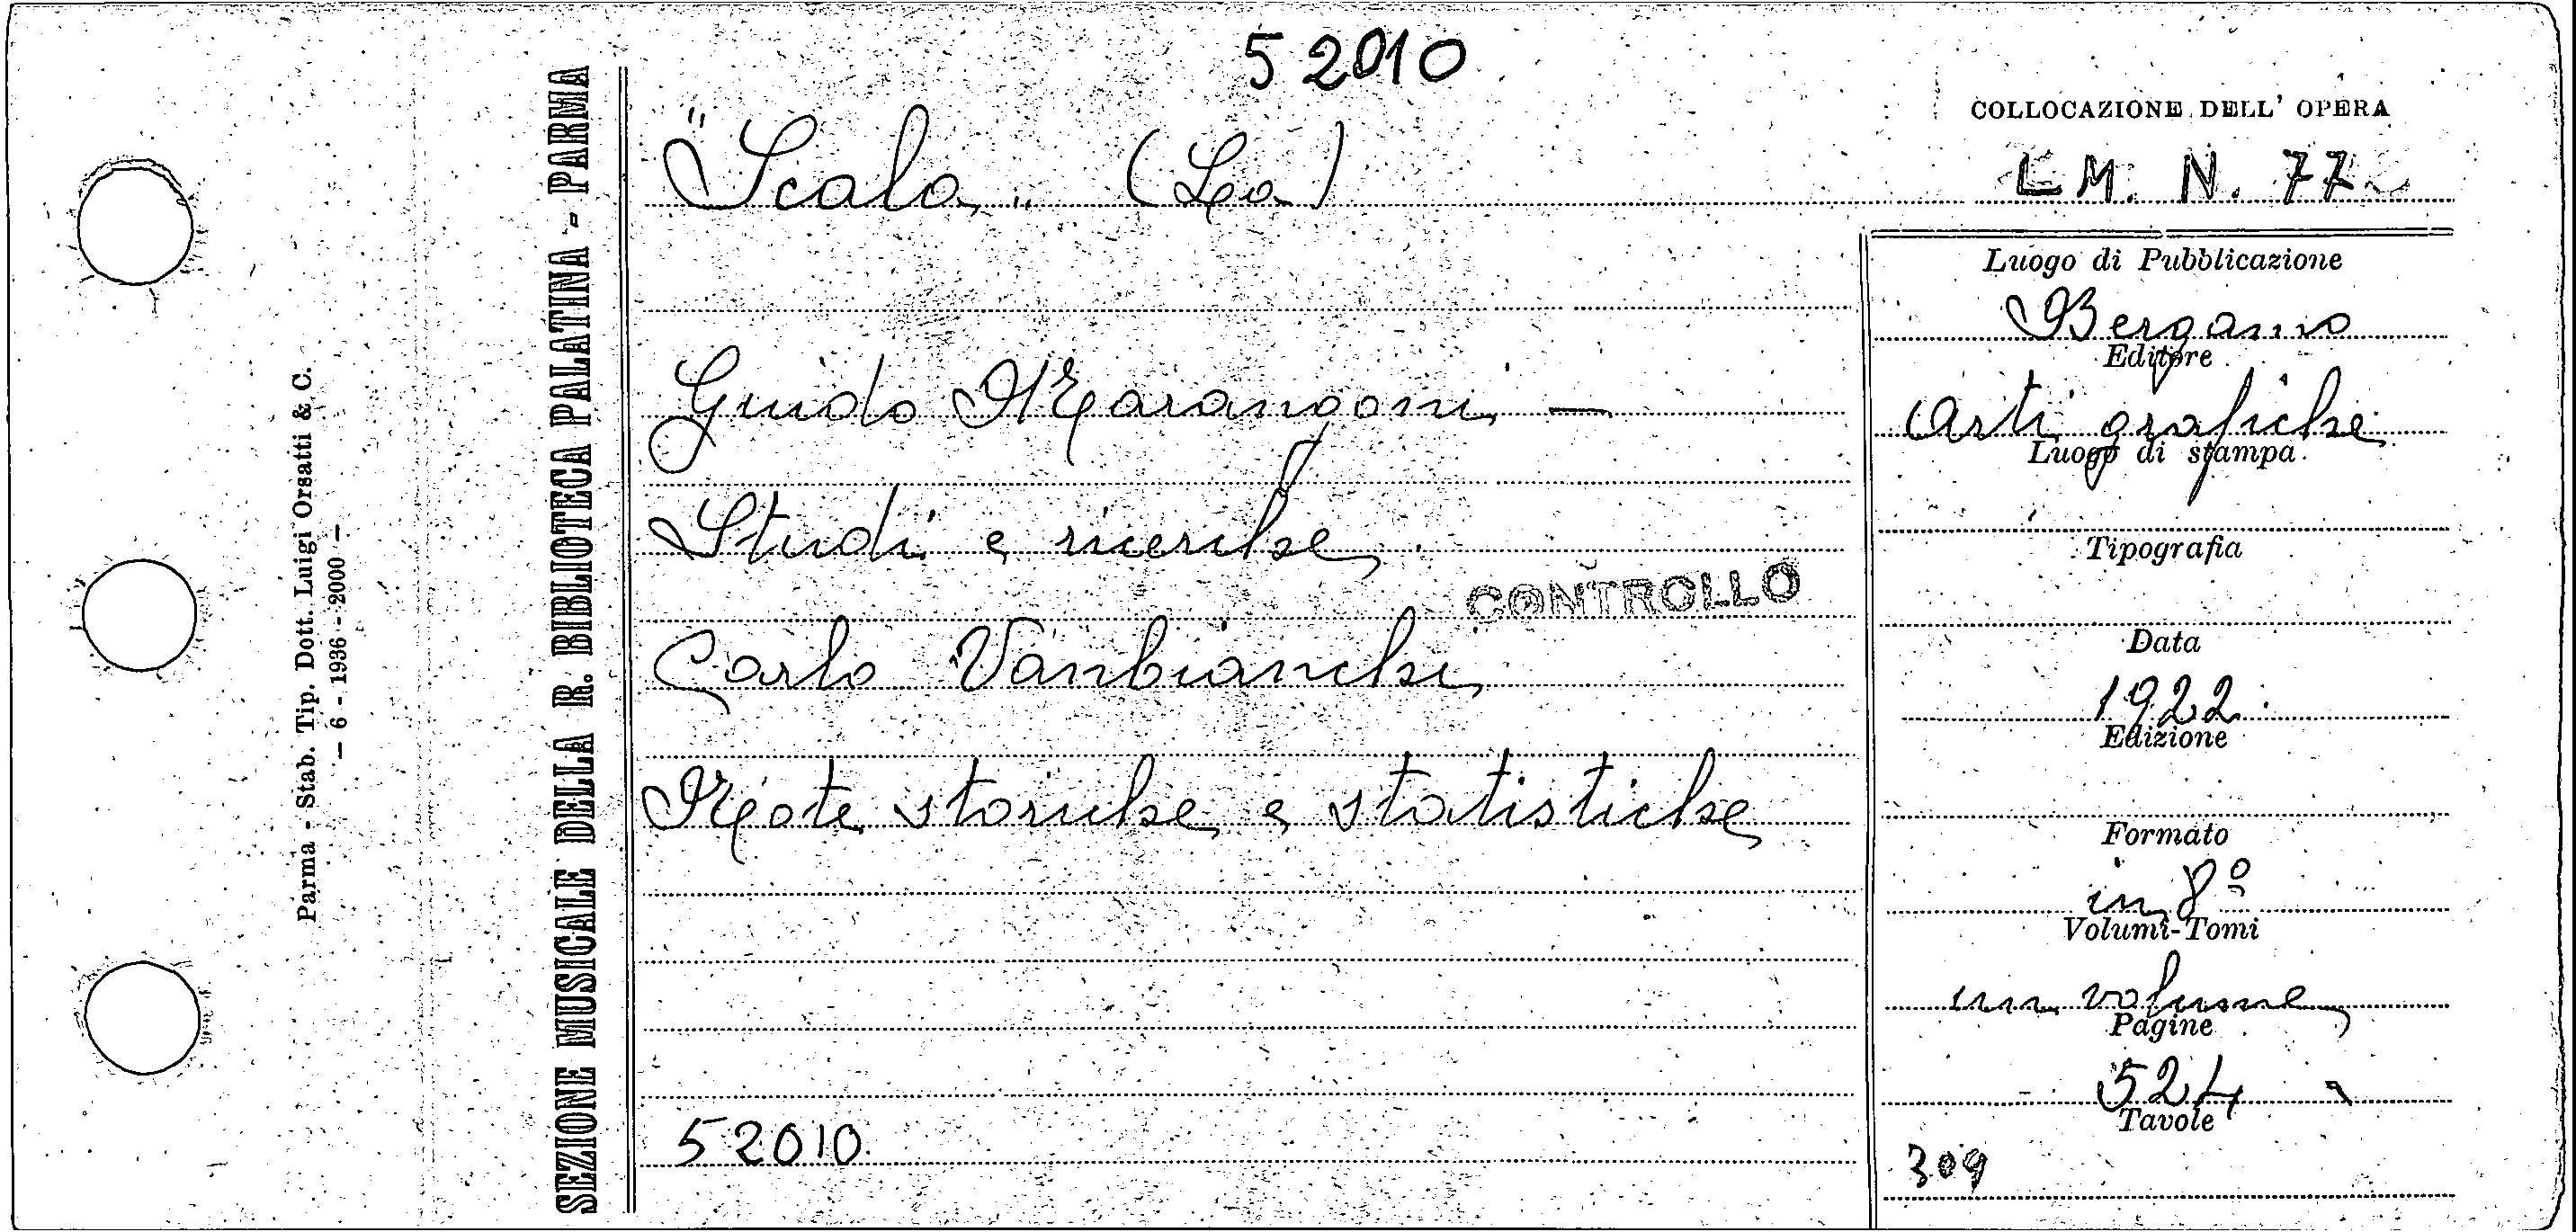 52010
"Scala" (La)
Guido Marangoni —
Studi e ricerche
CONTROLLO
Carlo Vanbianchi
Note storiche e statistiche
52010
COLLOCAZIONE DELL' OPERA
L M. N. 77
Luogo di Pubblicazione
Bergamo
Editore
Arti grafiche
Luogo di stampa
Tipografia
Data
1922
Edizione
Formato
in 8º
Volumi-Tomi
un volume
Pagine
524
Tavole
309
SEZIONE MUSICALE DELLA R. BIBLIOTECA PALATINA - PARMA
Parma - Stab. Tip. Dott. Luigi Orsatti & C.
— 6 - 1936 - 2000 —